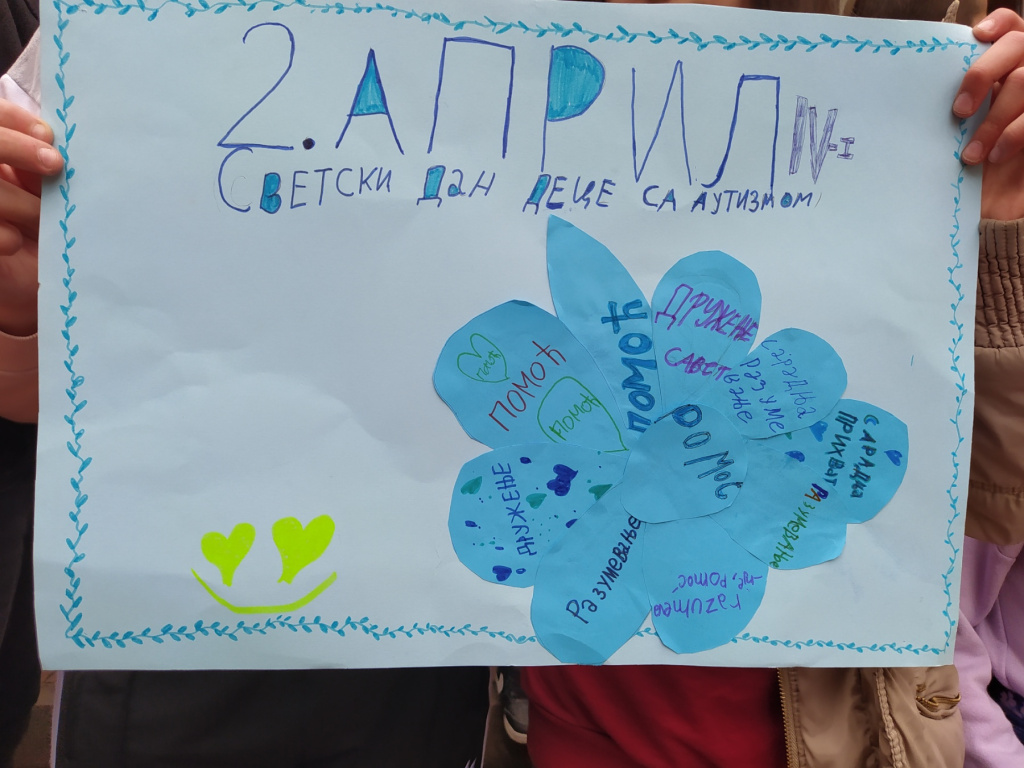 2. АПРИЛ IV-I
СВЕТСКИ ДАН ДЕЦЕ СА АУТИЗМОМ
ПОМОЋ
ДРУЖЕЊЕ
САВЕТ
ПОМОЋ
ПОМОЋ
ПОМОЋ
САРАДЊА
РАЗУМЕ
ВАЊЕ
ПОМОЋ
САРАДЊА
ПРИХВАТ
РАЗУМЕВАЊЕ
ДРУЖЕЊЕ
РАЗУМЕВАЊЕ
razumeva
-nje, pomoć